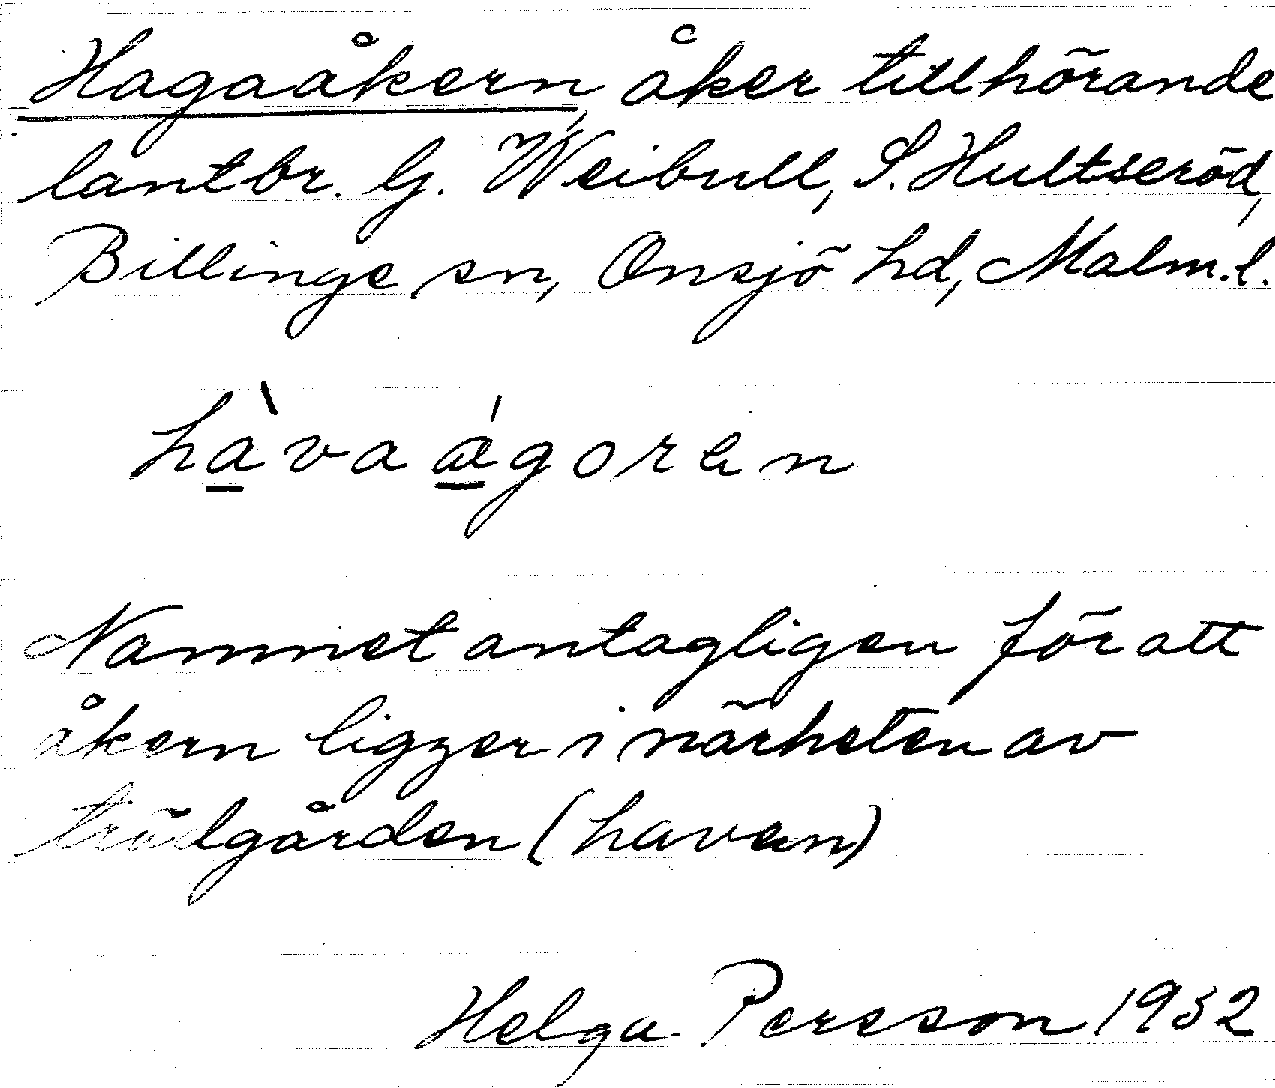 Hagaåkern, åker tillhörande
lantbr. G. Weibull, S. Hultseröd,
Billinge sn, Onsjö hd, Malm.l.
hàvaǽgoren
Namnet antagligen för att
åkern ligger i närheten av
trädgården (haven)
Helga Persson 1932